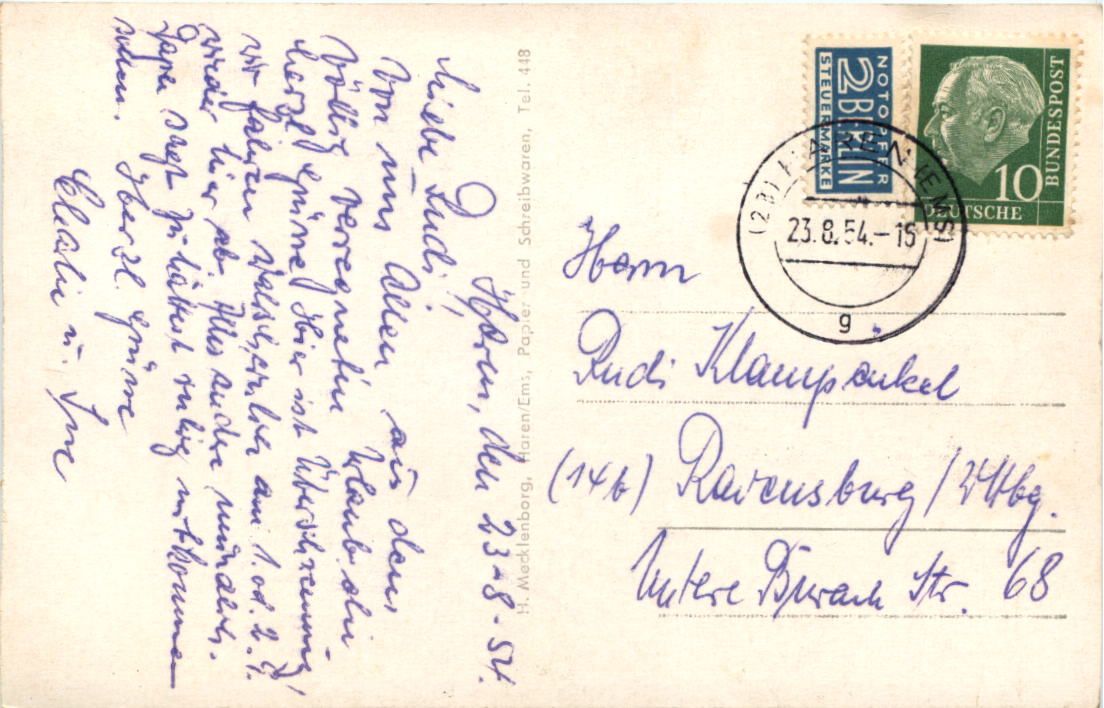 Haren, den 23.8.54.
Liebe Rudi!
Von uns Allen aus dem
völlig verregneten Urlaub die
herzl. Grüße. Hier ist Überschwemmung,
wir fahren am 1. od. 2. 9.
wieder hier ab. Alles andre mündl.
Papa sagt Du hättest ruhig mitkommen
sollen. Herzl. Grüße
u.
H. Mecklenborg, Haren/Ems, Papier und Schreibwaren, Tel. 448
NOTOPFER
2 BERLIN
STEUERMARKE
10
DEUTSCHE
BUNDESPOST
HAREN (EMS)
23.8.54.-15
g
Herrn
Rudi Klampenkel
(14b) Ravensburg/Wttbg.
Untere Burach Str. 68